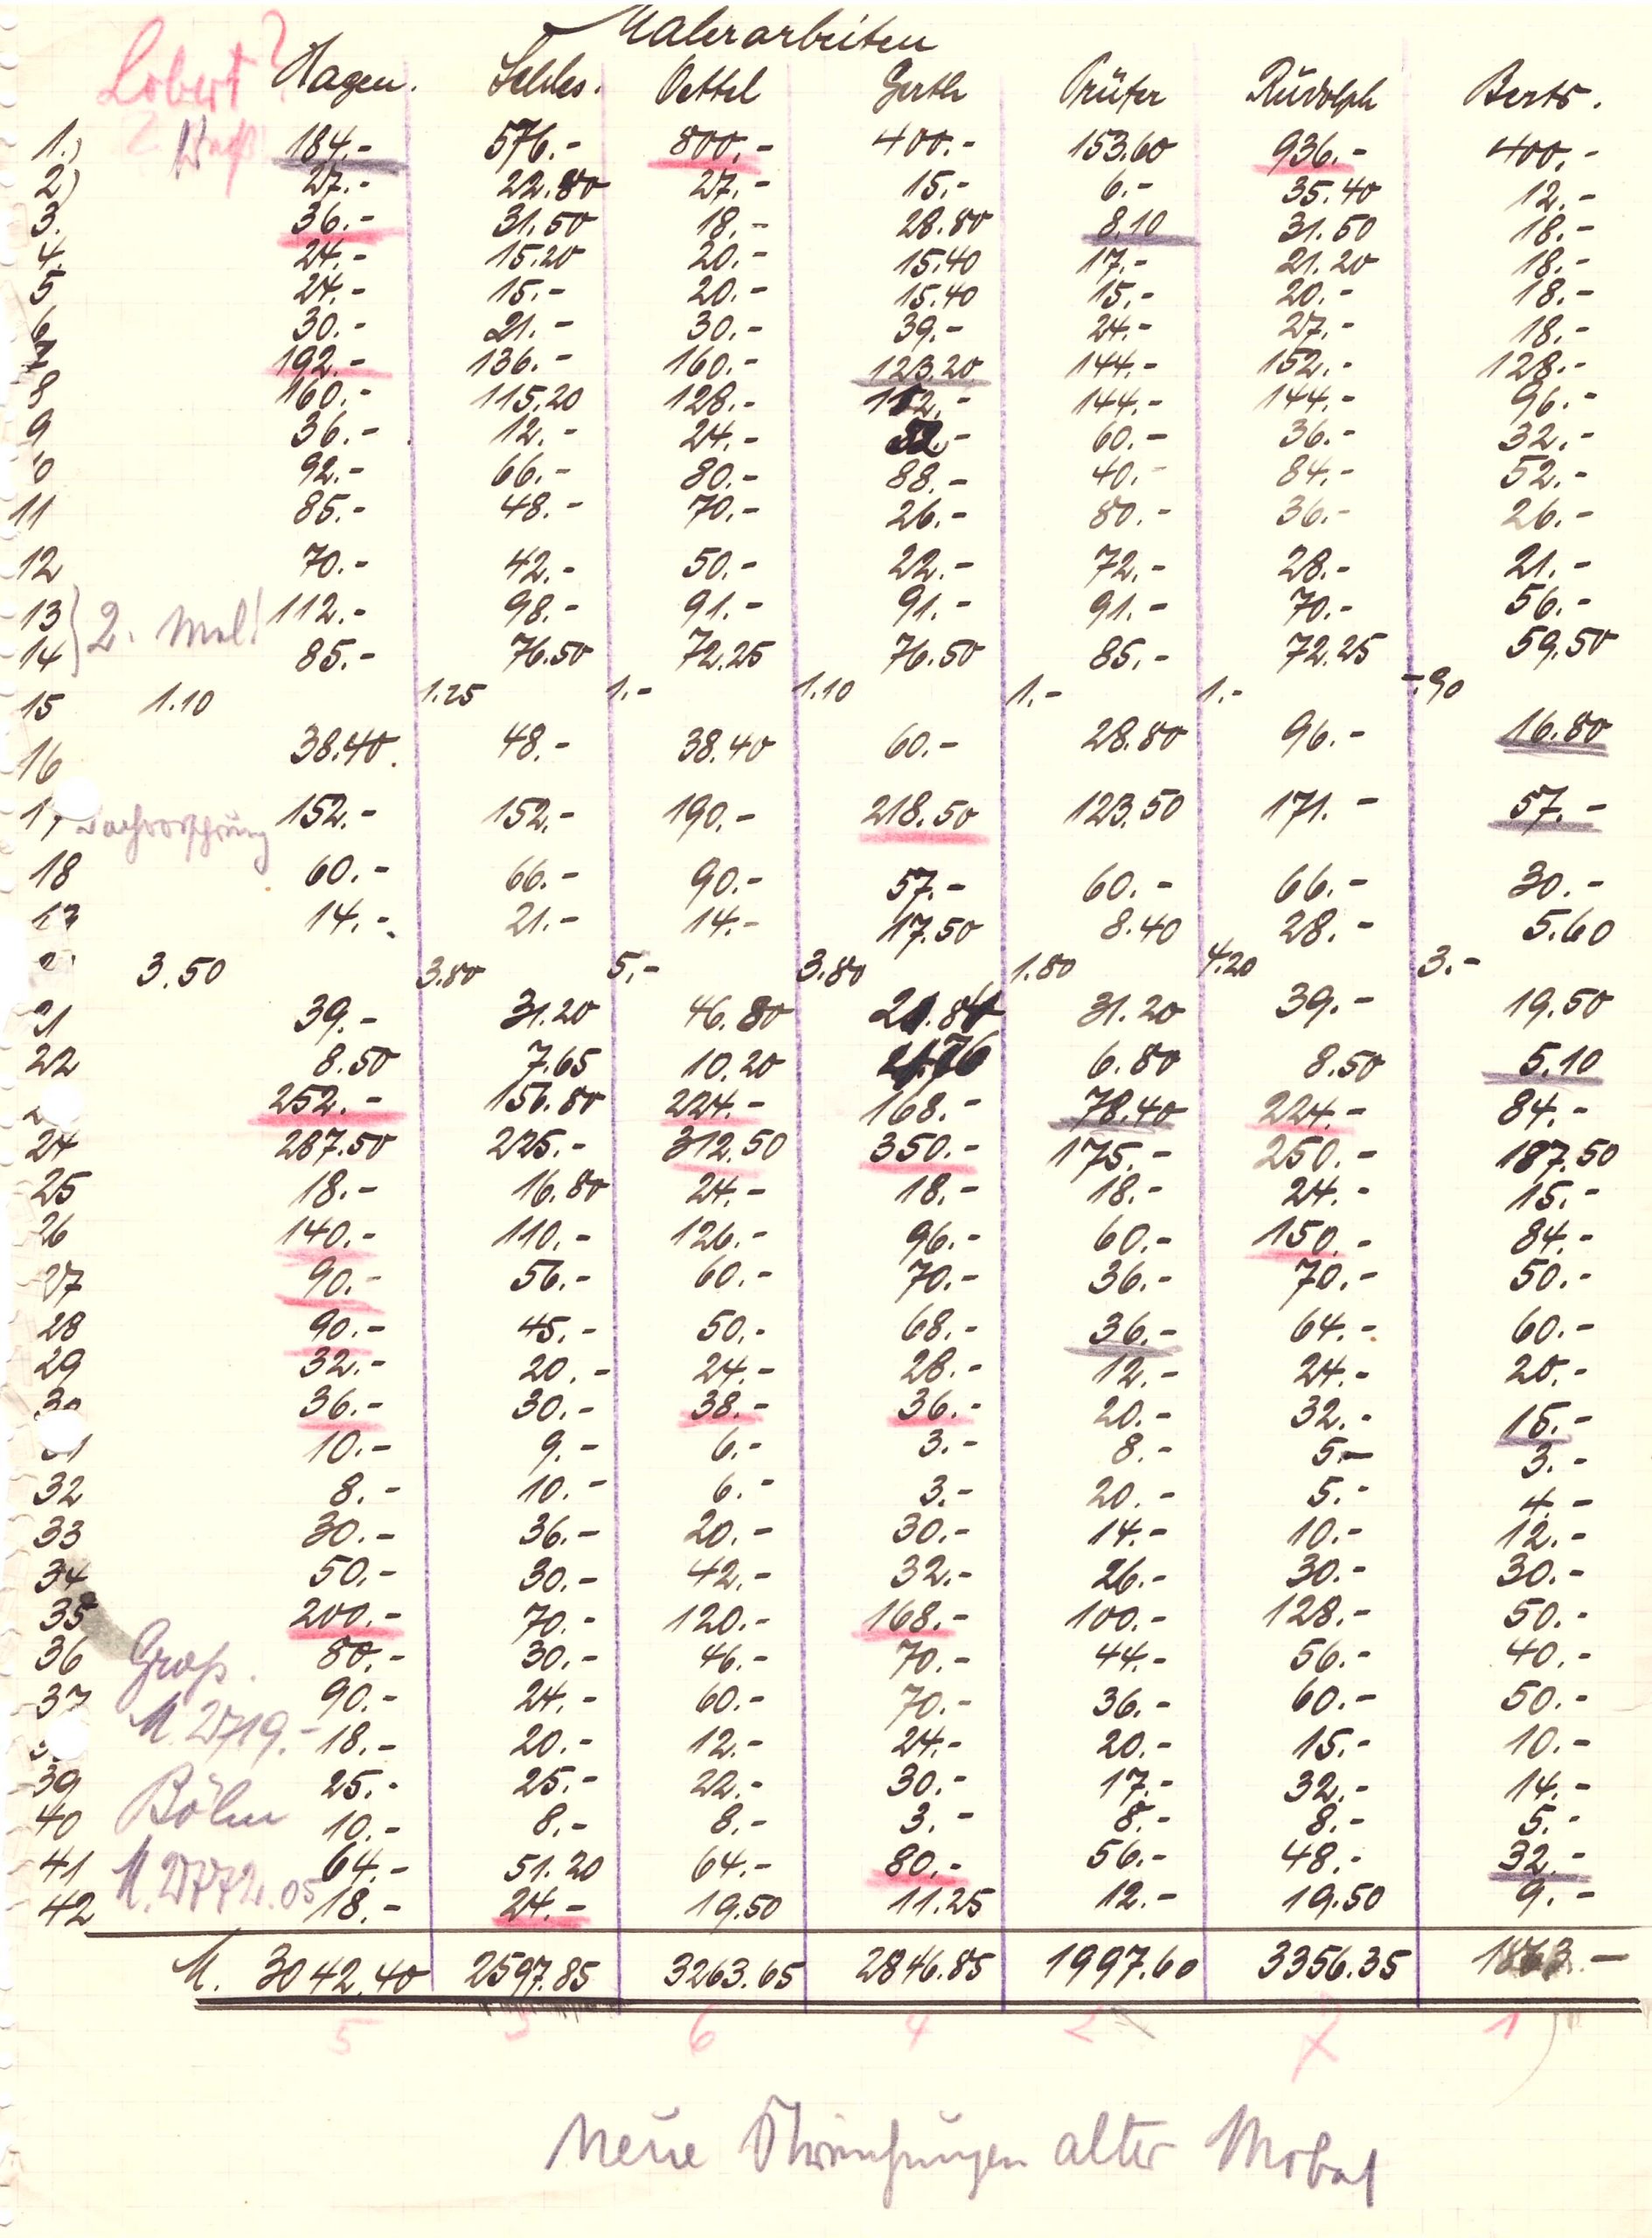 Malerarbeiten
Lobert?
Hagen. Oettel Gerth Prüfer Rudolph Berts.
1.) 184.- 576.- 800.- 400.- 153.60 936.- 400.-
2) 27.- 22.80 27.- 15.- 6.- 35.40 12.-
3. 36.- 31.50 18.- 28.80 8.10 31.50 18.-
4. 24.- 15.20 20.- 15.40 17.- 21.20 18.-
5 24.- 15.- 20.- 15.40 15.- 20.- 18.-
6 30.- 21.- 30.- 39.- 24.- 27.- 18.-
7 192.- 136.- 160.- 123.20 144.- 152.- 128.-
8 160.- 115.20 128.- 112.- 144.- 144.- 96.-
9 36.- 12.- 24.- 32.- 60.- 36.- 32.-
10 92.- 66.- 80.- 88.- 40.- 84.- 52.-
11 85.- 48.- 70.- 26.- 80.- 36.- 26.-
12 70.- 42.- 50.- 22.- 72.- 28.- 21.-
13 112.- 98.- 91.- 91.- 91.- 70.- 56.-
2. Mal!
14 85.- 76.50 72.25 76.50 85.- 72.25 59.50
15 1.10 1.25 1.- 1.10 1.- 1.- -.90
16 38.40 48.- 38.40 60.- 28.80 96.- 16.80
17 Dachvorsprung 152.- 152.- 190.- 218.50 123.50 171.- 57.-
18 60.- 66.- 90.- 57.- 60.- 66.- 30.-
19 14.- 21.- 14.- 17.50 8.40 28.- 5.60
3.50 3.80 5.- 3.80 1.80 4.20 3.-
21 39.- 31.20 46.80 21.84 31.20 39.- 19.50
22 8.50 7.65 10.20 6.80 8.50 5.10
252.- 156.80 224.- 168.- 78.40 224.- 84.-
24 287.50 225.- 312.50 350.- 175.- 250.- 187.50
25 18.- 16.80 24.- 18.- 18.- 24.- 15.-
26 140.- 110.- 126.- 96.- 60.- 150.- 84.-
27 90.- 56.- 60.- 70.- 36.- 70.- 50.-
28 90.- 45.- 50.- 68.- 36.- 64.- 60.-
29 32.- 20.- 24.- 28.- 12.- 24.- 20.-
30 36.- 30.- 38.- 36.- 20.- 32.- 15.-
31 10.- 9.- 6.- 3.- 8.- 5.- 3.-
32 8.- 10.- 6.- 3.- 20.- 5.- 4.-
33 30.- 36.- 20.- 30.- 14.- 10.- 12.-
34 50.- 30.- 42.- 32.- 26.- 30.- 30.-
35 200.- 70.- 120.- 168.- 100.- 128.- 50.-
36 Groß. 80.- 30.- 46.- 70.- 44.- 56.- 40.-
37 M. 2719.- 90.- 24.- 60.- 70.- 36.- 60.- 50.-
18.- 20.- 12.- 24.- 20.- 15.- 10.-
39 Böhm 25.- 25.- 22.- 30.- 17.- 32.- 14.-
40 10.- 8.- 8.- 3.- 8.- 8.- 5.-
41 M. 2772.05 64.- 51.20 64.- 80.- 56.- 48.- 32.-
42 18.- 24.- 19.50 11.25 12.- 19.50 9.-
M. 3042.40 2597.85 3263.65 2846.85 1997.60 3356.35
5 3 6 4 2 7 1
Neue alter